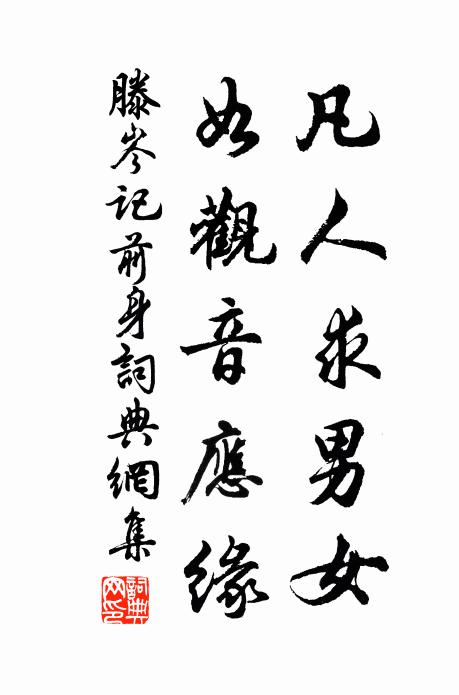 凡人求男女
如觀音應緣
滕岑記前身詞典網集
詞典網印